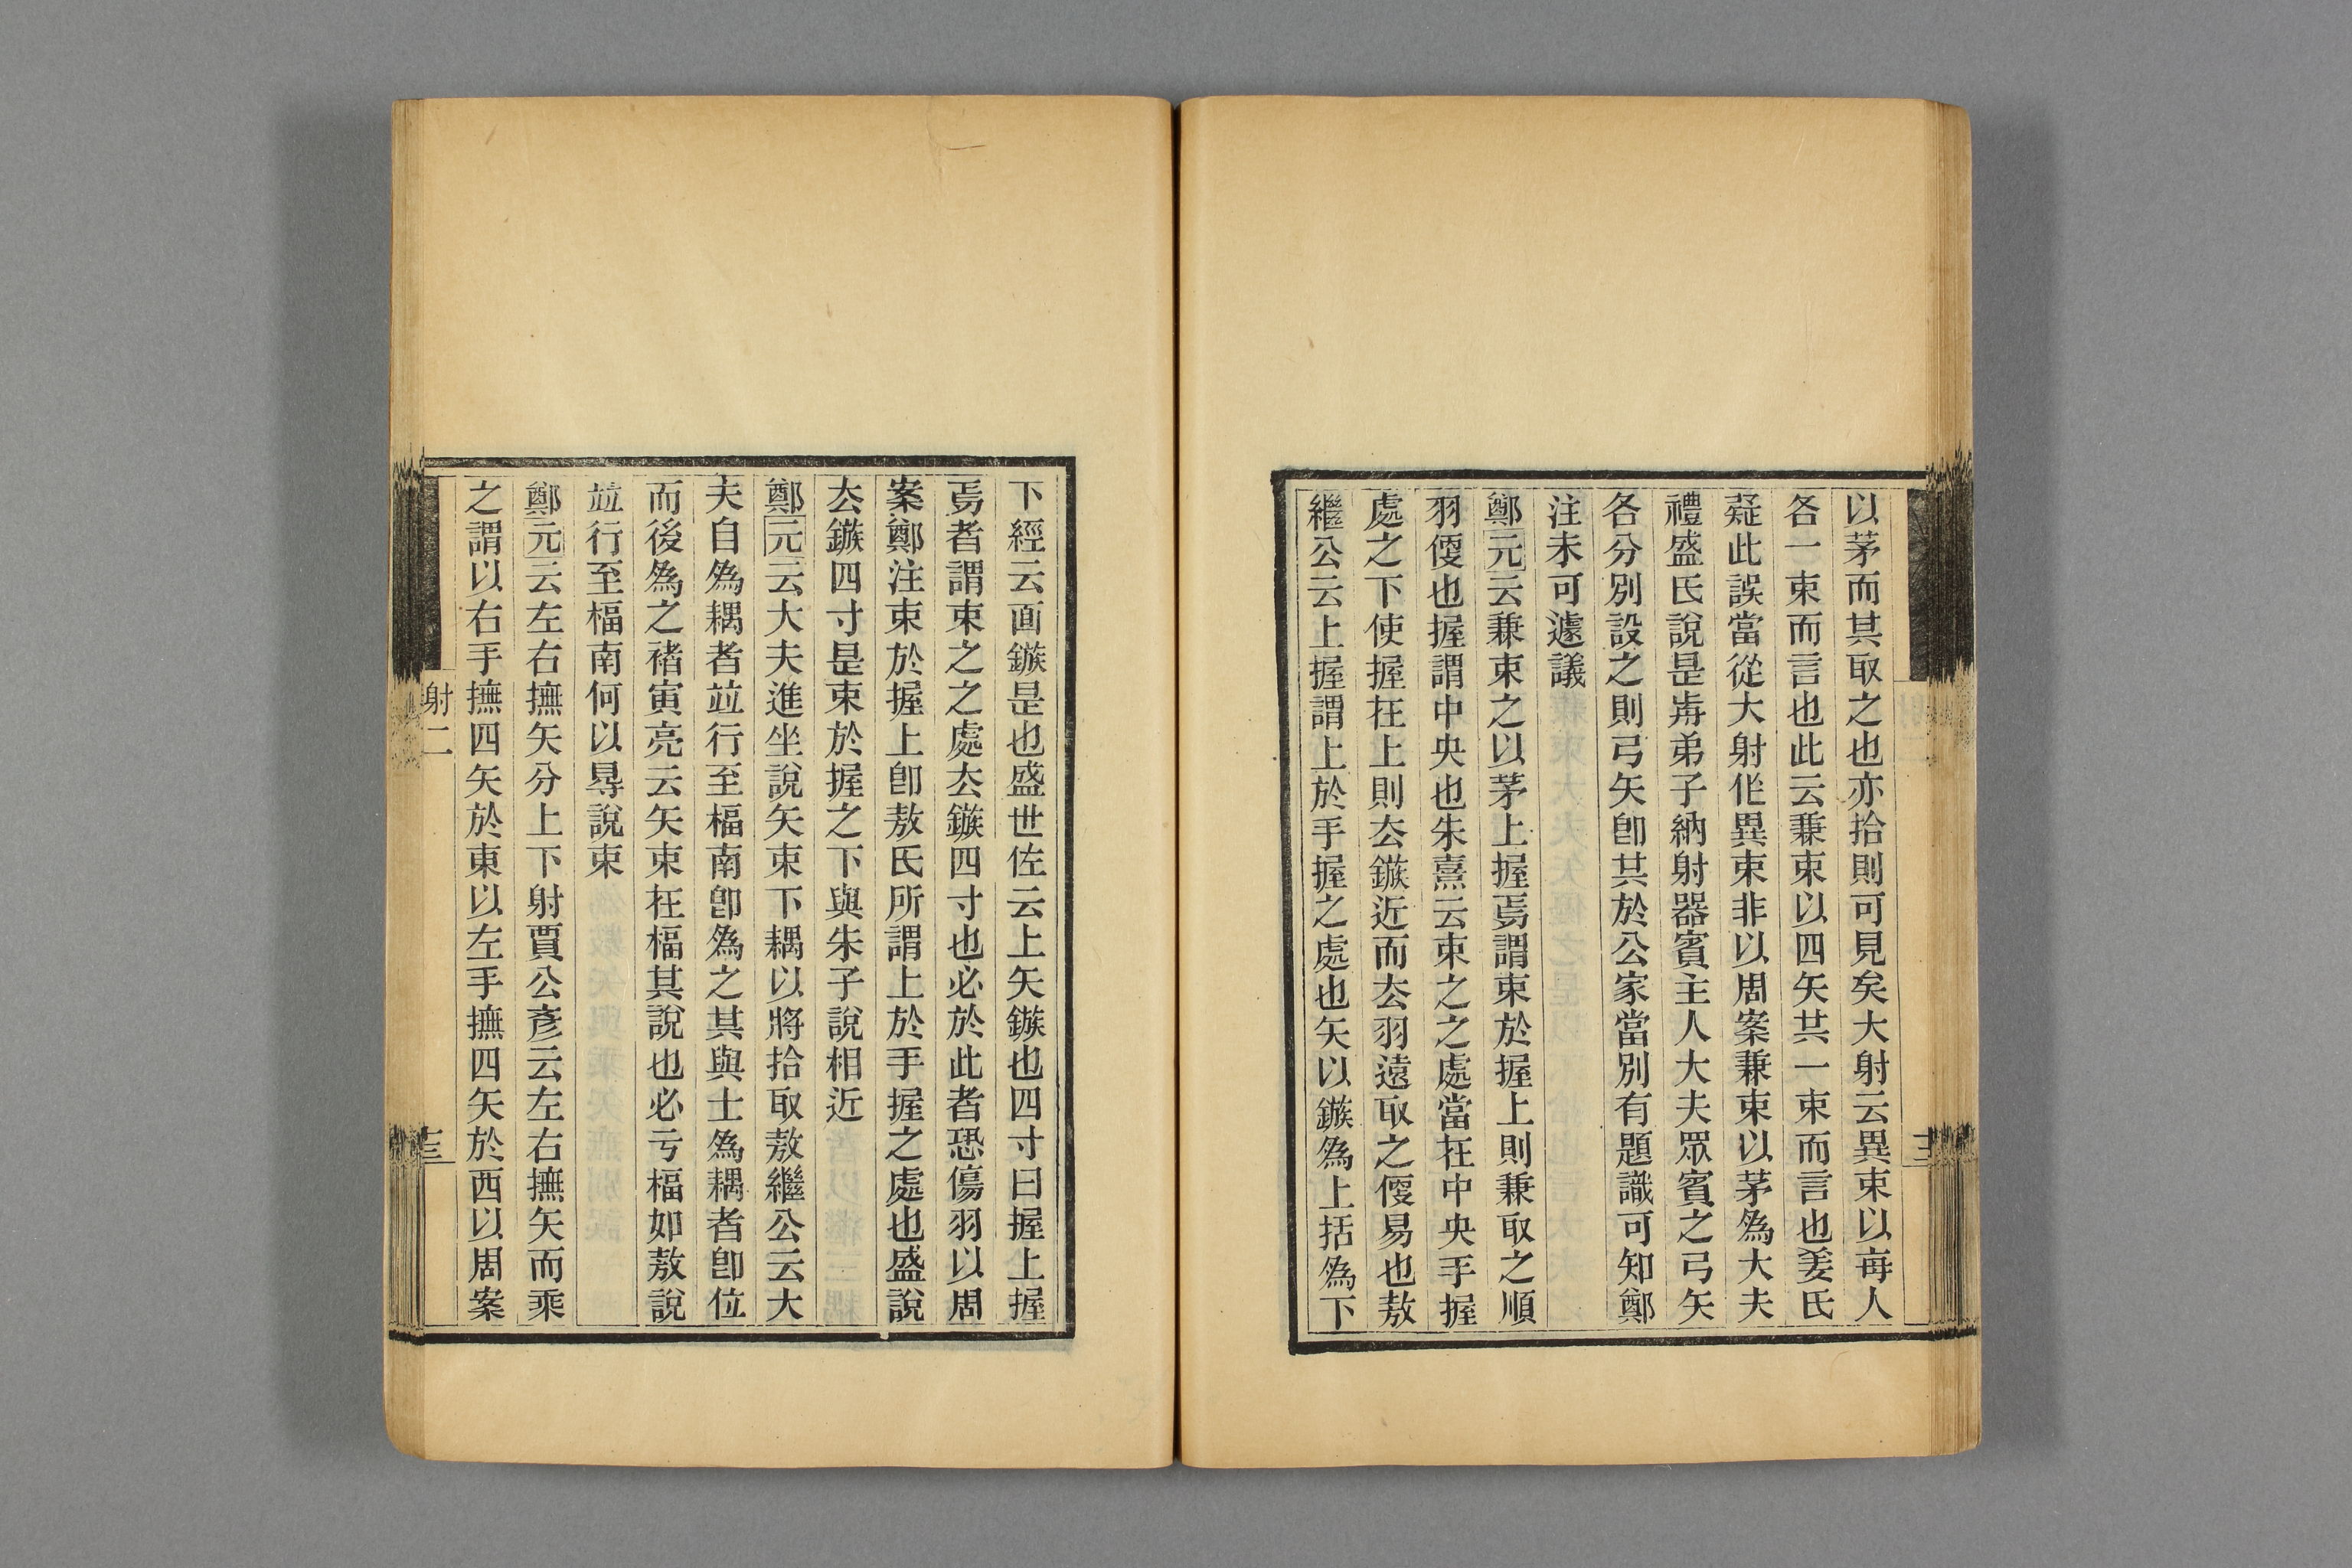 以茅而其取之也亦拾則可見矣大射云異束以每人
各一束而言也此云兼束以四矢共一束而言也姜氏
疑此誤當從大射作異束非以周案兼束以茅爲大夫
禮盛氏說是歬弟子納射器賓主人大夫眾賓之弓矢
各分別設之則弓矢卽共於公家當別有題識可知鄭
注未可遽議
鄭元云兼束之以茅上握焉謂束於握上則兼取之順
羽偄也握謂中央也朱熹云束之之處當在中央手握
處之下使握在上則厺鏃近而厺羽遠取之偄易也敖
繼公云上握謂上於手握之處也矢以鏃爲上括爲下
下經云面鏃是也盛世佐云上矢鏃也四寸曰握上握
焉者謂束之之處厺鏃四寸也必於此者恐傷羽以周
案鄭注束於握上卽敖氏所謂上於手握之處也盛說
厺鏃四寸是束於握之下與朱子說相近
鄭元云大夫進坐說矢束下耦以將拾取敖繼公云大
夫自爲耦者竝行至楅南卽爲之其與士爲耦者卽位
而後爲之褚寅亮云矢束在楅其說也必亏楅如敖說
竝行至楅南何以㝵說束
鄭元云左右撫矢分上下射賈公彥云左右撫矢而乘
之謂以右手撫四矢於東以左手撫四矢於西以周案
射二